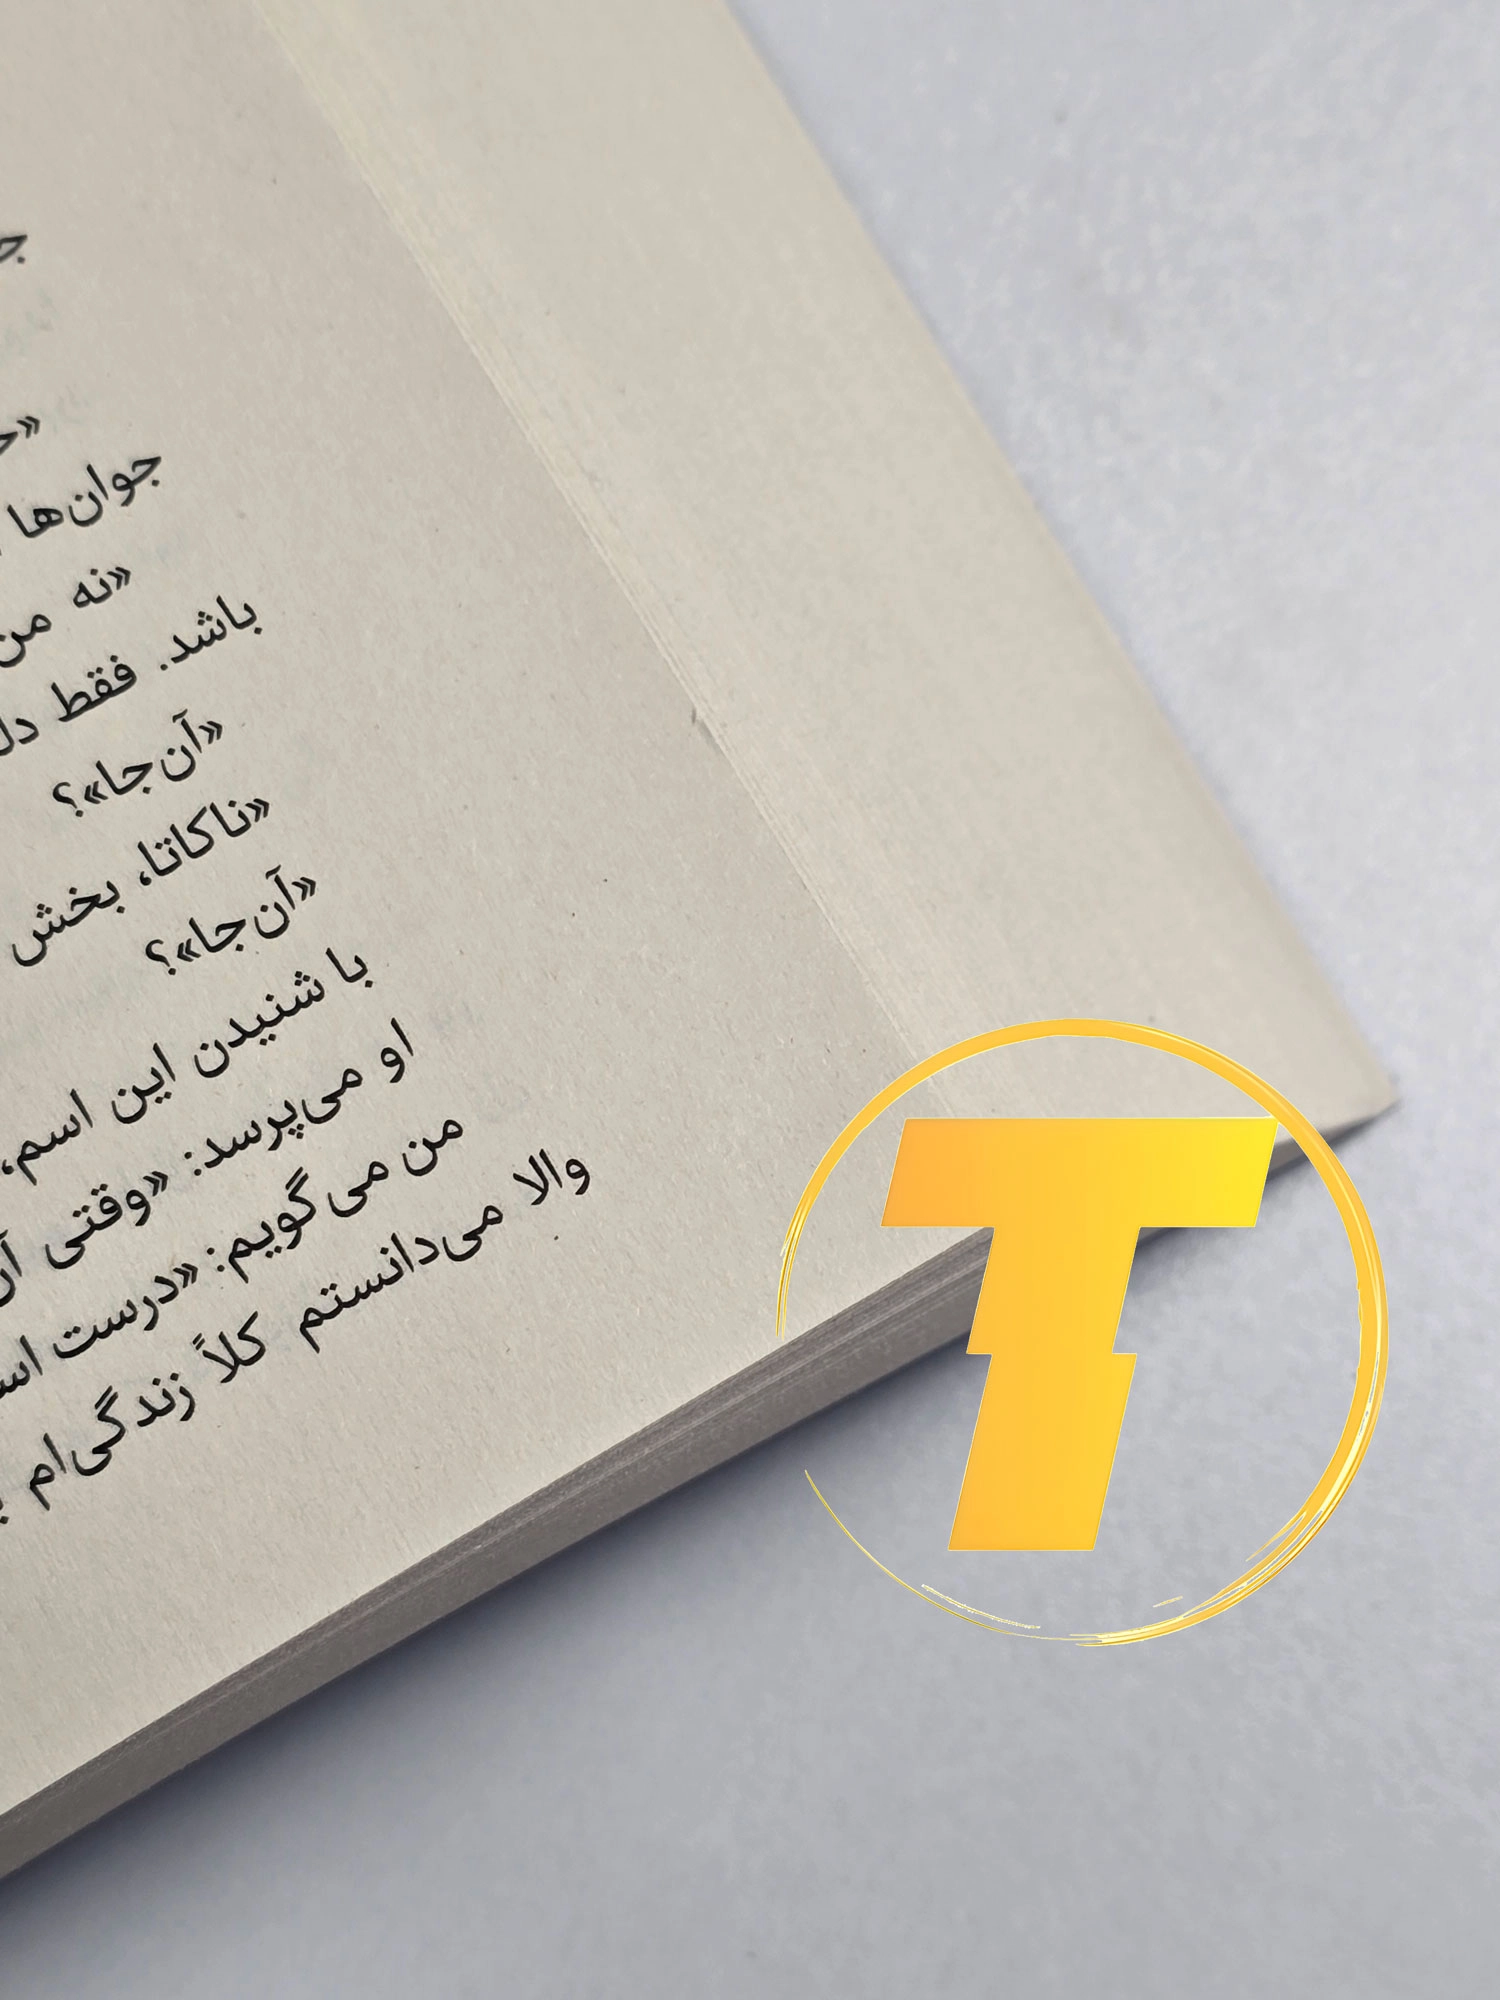 جوان‌ها
«نه من
باشد. فقط
«آن‌جا»؟
«ناکاتا، بخش
«آن‌جا»؟
با شنیدن این اسم،
او می‌پرسد: «وقتی
من می‌گویم: «درست
والا می‌دانستم کلاً زندگی‌ام
T